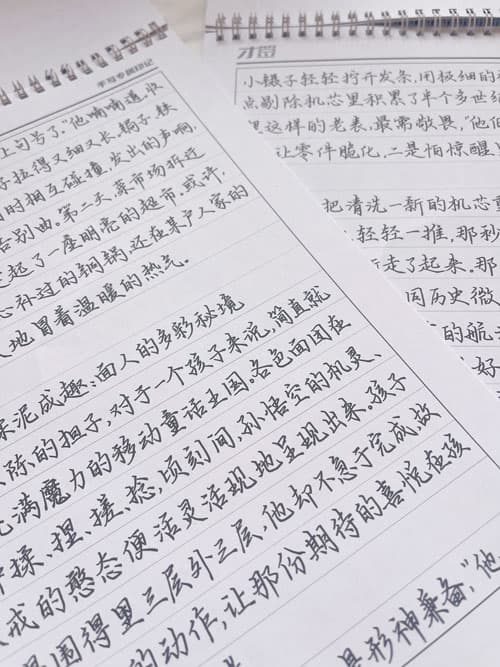 手写专属印记
上句号了。"他喃喃道,收
子拉得又细又长,锔子、铁
同时相互碰撞发出的声响,
告别曲。第二天,菜市场拆迁
起了一座明亮的超市。或许,
心补过的铜锅,还在某户人家的
地冒着温暖的热气。
泥成趣:面人的多彩秘境
陈的担子,对于一个孩子来说,简直就
充满魔力的移动童话王国。各色面团在
揉、捏、搓、捻,顷刻间,孙悟空的机灵、
戒的憨态便活灵活现地呈现出来。孩子
围得里三层外三层,他却不急于完成,故
的动作,让那份期待的喜悦在孩
形神兼备,"他
小镊子轻轻拧开发条,用极细的
点剔除机芯里积累了半个多世纪
这样的老表,最需敬畏,"他
让零件脆化,二是怕惊醒
把清洗一新的机芯重
轻轻一推,那秒
走了起来。那
历史微
的航
好